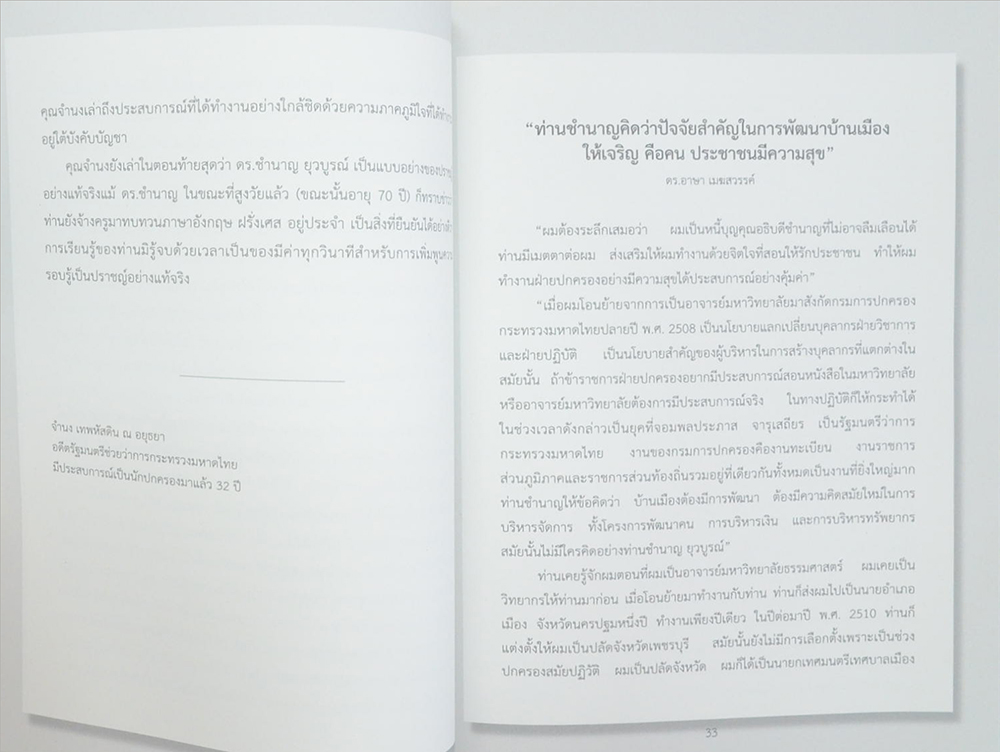 คุณจำนงเล่าถึงประสบการณ์ที่ได้ทำงานอย่างใกล้ชิดด้วยความภาคภูมิใจที่ได้
อยู่ใต้บังคับบัญชา
คุณจำนงยังเล่าในตอนท้ายสุดว่า ดร.ชำนาญ ยุวบูรณ์ เป็นแบบอย่างของ
อย่างแท้จริงแม้ ดร.ชำนาญ ในขณะที่สูงวัยแล้ว (ขณะนั้นอายุ 70 ปี) ก็ทราบ
ท่านยังจ้างครูมาทบทวนภาษาอังกฤษ ฝรั่งเศส อยู่ประจำ เป็นสิ่งที่ยืนยันได้
การเรียนรู้ของท่านมิรู้จบด้วยเวลาเป็นของมีค่าทุกวินาทีสำหรับการเพิ่มพูน
รอบรู้เป็นปราชญ์อย่างแท้จริง
จำนง เทพหัสดิน ณ อยุธยา
อดีตรัฐมนตรีช่วยว่าการกระทรวงมหาดไทย
มีประสบการณ์เป็นนักปกครองมาแล้ว 32 ปี
“ท่านชำนาญคิดว่าปัจจัยสำคัญในการพัฒนาบ้านเมือง
ให้เจริญ คือคน ประชาชนมีความสุข”
ดร.อาษา เมฆสวรรค์
“ผมต้องระลึกเสมอว่า ผมเป็นหนี้บุญคุณอธิบดีชำนาญที่ไม่อาจลืมเลือนได้
ท่านมีเมตตาต่อผม ส่งเสริมให้ผมทำงานด้วยจิตใจที่สอนให้รักประชาชน ทำให้ผม
ทำงานฝ่ายปกครองอย่างมีความสุขได้ประสบการณ์อย่างคุ้มค่า”
“เมื่อผมโอนย้ายจากการเป็นอาจารย์มหาวิทยาลัยมาสังกัดกรมการปกครอง
กระทรวงมหาดไทยปลายปี พ.ศ. 2508 เป็นนโยบายแลกเปลี่ยนบุคลากรฝ่ายวิชาการ
และฝ่ายปฏิบัติ เป็นนโยบายสำคัญของผู้บริหารในการสร้างบุคลากรที่แตกต่างใน
สมัยนั้น ถ้าข้าราชการฝ่ายปกครองอยากมีประสบการณ์สอนหนังสือในมหาวิทยาลัย
หรืออาจารย์มหาวิทยาลัยต้องการมีประสบการณ์จริง ในทางปฏิบัติก็ให้กระทำได้
ในช่วงเวลาดังกล่าวเป็นยุคที่จอมพลประภาส จารุเสถียร เป็นรัฐมนตรีว่าการ
กระทรวงมหาดไทย งานของกรมการปกครองคืองานทะเบียน งานราชการ
ส่วนภูมิภาคและราชการส่วนท้องถิ่นรวมอยู่ที่เดียวกันทั้งหมดเป็นงานที่ยิ่งใหญ่มาก
ท่านชำนาญให้ข้อคิดว่า บ้านเมืองต้องมีการพัฒนา ต้องมีความคิดสมัยใหม่ในการ
บริหารจัดการ ทั้งโครงการพัฒนาคน การบริหารเงิน และการบริหารทรัพยากร
สมัยนั้นไม่มีใครคิดอย่างท่านชำนาญ ยุวบูรณ์”
ท่านเคยรู้จักผมตอนที่ผมเป็นอาจารย์มหาวิทยาลัยธรรมศาสตร์ ผมเคยเป็น
วิทยากรให้ท่านมาก่อน เมื่อโอนย้ายมาทำงานกับท่าน ท่านก็ส่งผมไปเป็นนายอำเภอ
เมือง จังหวัดนครปฐมหนึ่งปี ทำงานเพียงปีเดียว ในปีต่อมาปี พ.ศ. 2510 ท่านก็
แต่งตั้งให้ผมเป็นปลัดจังหวัดเพชรบุรี สมัยนั้นยังไม่มีการเลือกตั้งเพราะเป็นช่วง
ปกครองสมัยปฏิวัติ ผมเป็นปลัดจังหวัด ผมก็ได้เป็นนายกเทศมนตรีเทศบาลเมือง
33